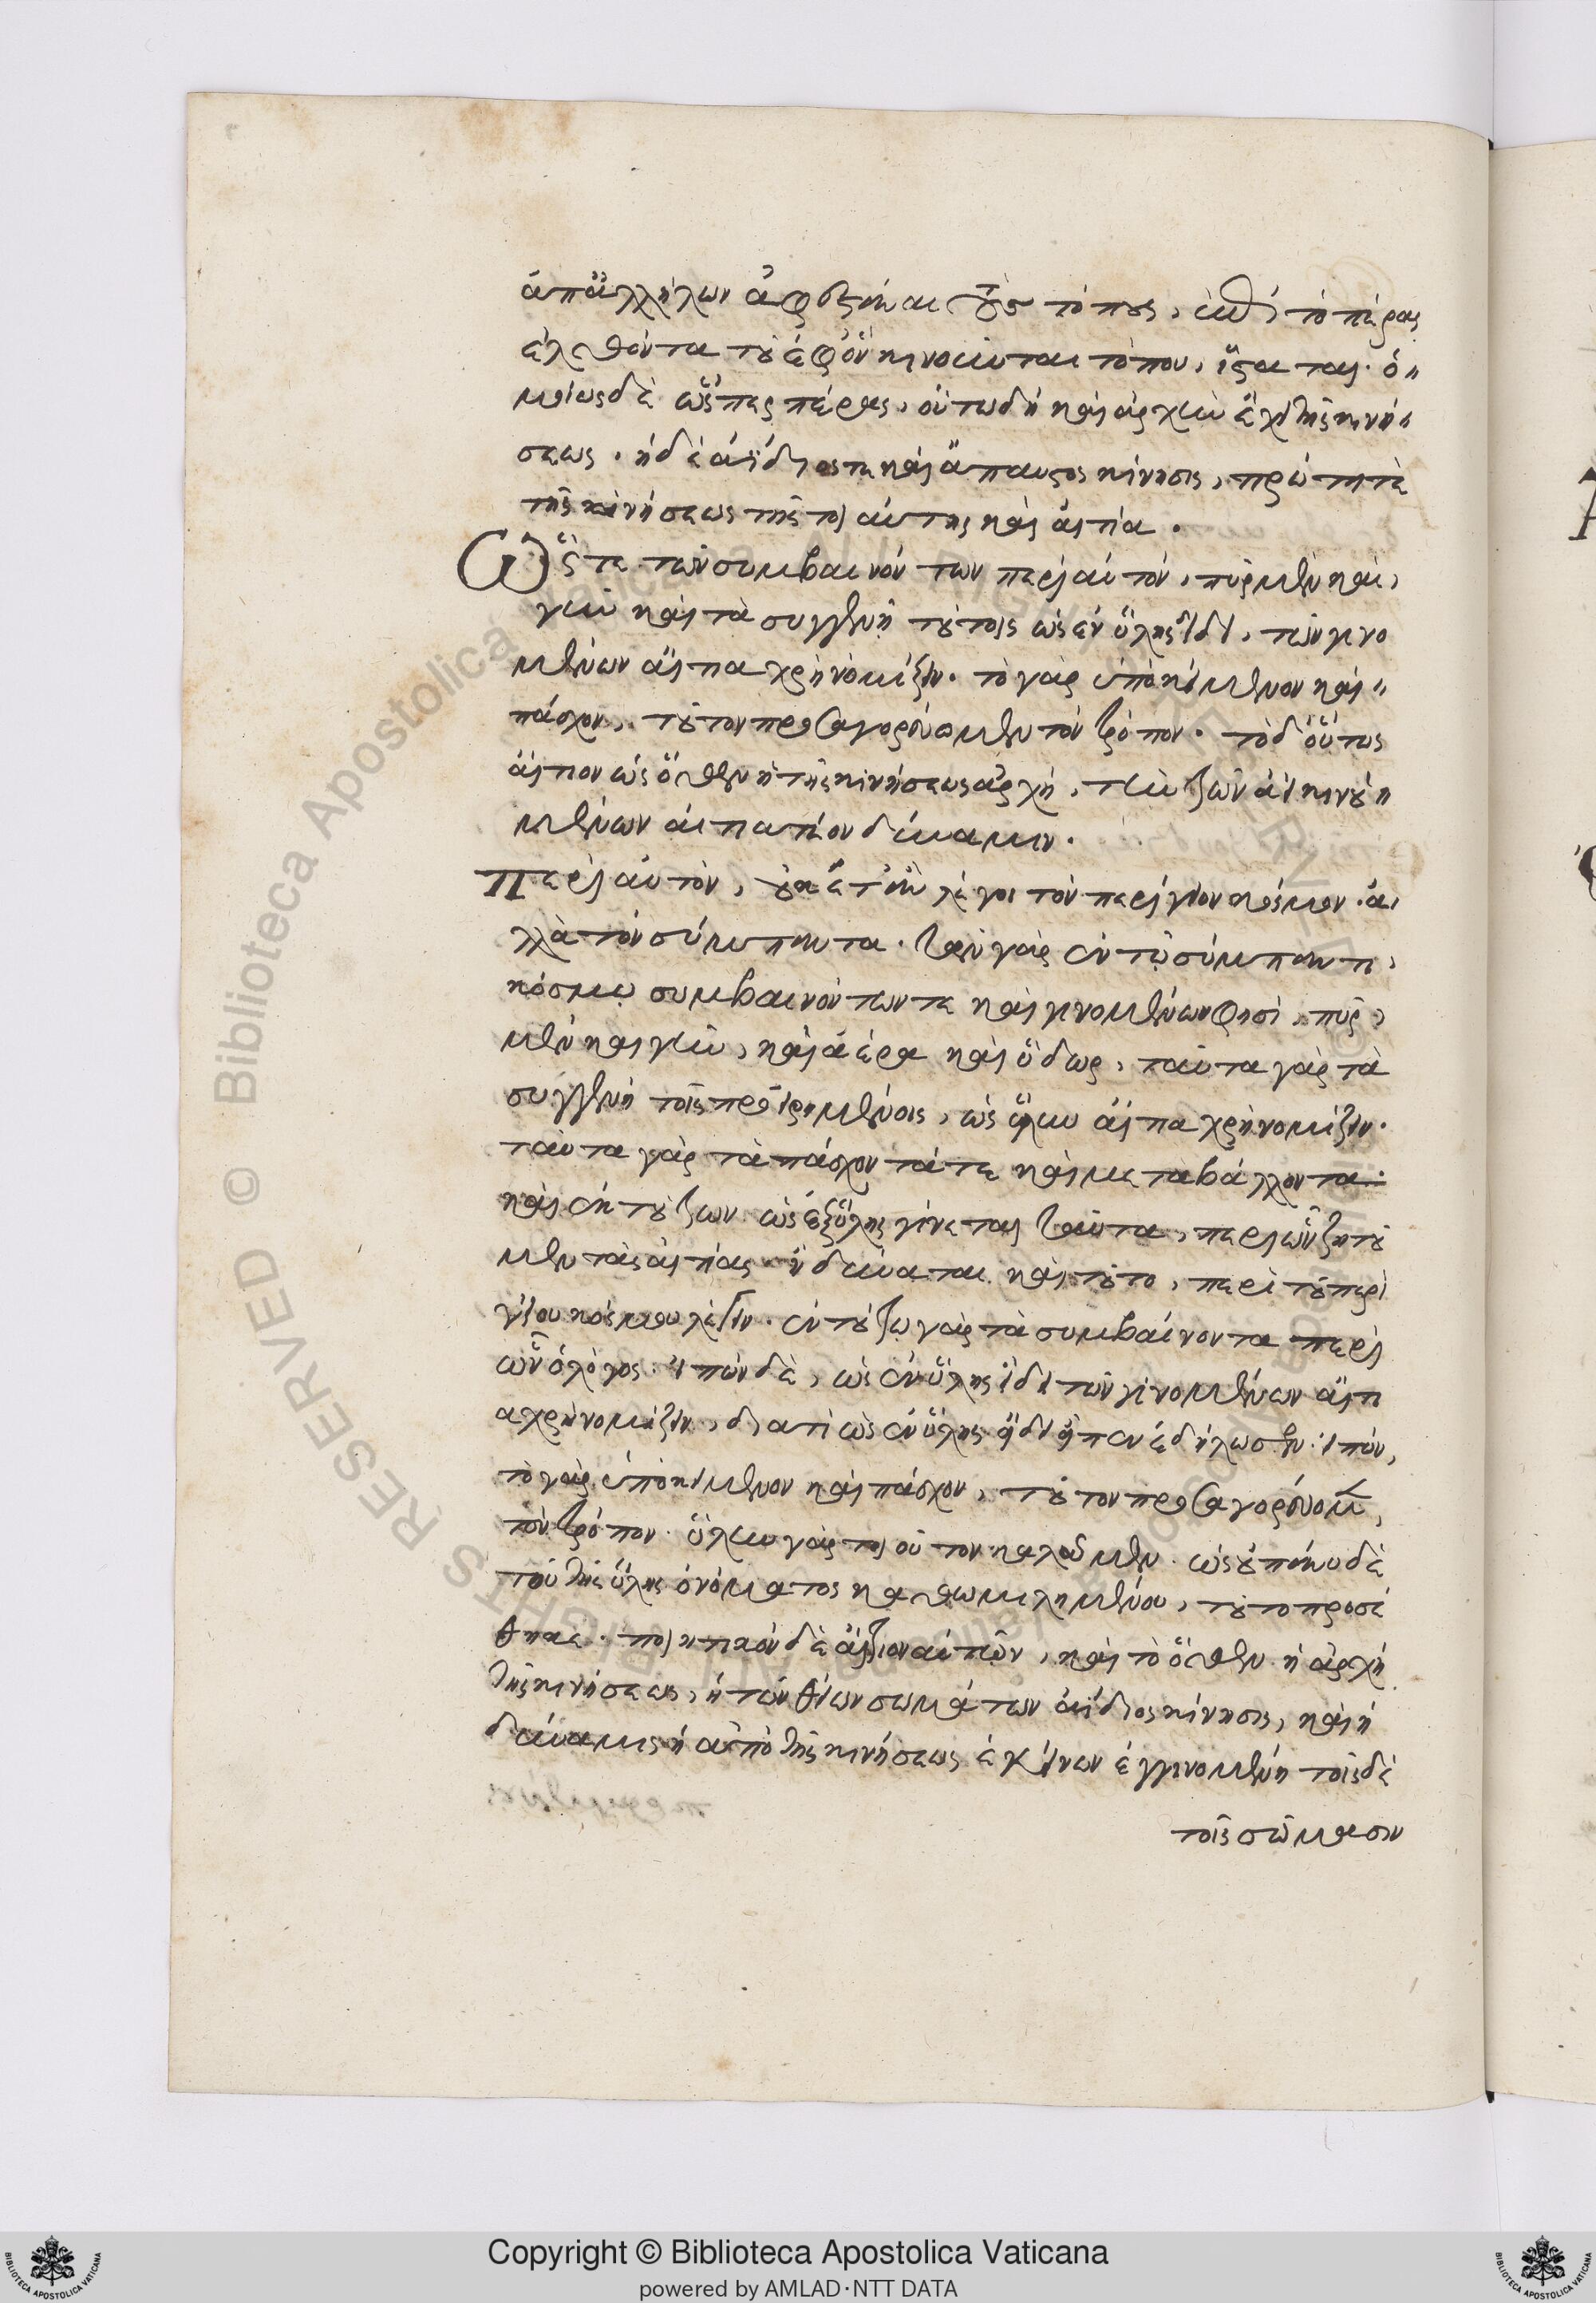 ἀπ' ἀλλήλων ἀφεστάναι τοὺς τόπους, κατὰ τὸ πέρας
ἐλθόντα τοῦ ἐφ' ὃν κινοῦνται τόπου, ἵσταται. ὁ
μοίως δὲ ὥσπερ πέρας, οὕτω δὴ καὶ ἀρχὴν ἔχει τῆς κινή
σεως. ἡ δὲ ἀΐδιός τε καὶ ἄπαυστος κίνησις, πρώτη τε
τῆς κινήσεως τῆς τοιαύτης καὶ αἰτία.
Ὥστε τῶν συμβαινόντων περὶ αὐτὸν, πῦρ μὲν καὶ
γῆν καὶ τὰ συγγενῆ τούτοις ὡς ἐν ὕλης εἴδει, τῶν γινο
μένων αἴτια χρὴ νομίζειν. τὸ γὰρ ὑποκείμενον καὶ
πάσχον, τοῦτον προσαγορεύομεν τὸν τρόπον. τὸ δ' οὕτως
αἴτιον ὡς ὅθεν ἡ τῆς κινήσεως ἀρχή, τὴν τῶν ἀεὶ κινου
μένων αἰτιατέον δύναμιν.
Περὶ αὐτὸν, οὐκέτ' ἂν λέγοι τὸν περίγειον κόσμον. ἀλ
λὰ τὸν σύμπαντα. τῶν γὰρ ἐν τῷ σύμπαντι
κόσμῳ συμβαινόντων τε καὶ γινομένων φησὶ, πῦρ
μὲν καὶ γῆν, καὶ ἀέρα καὶ ὕδωρ, ταῦτα γὰρ τὰ
συγγενῆ τοῖς προειρημένοις, ὡς ὕλην αἴτια χρὴ νομίζειν.
ταῦτα γὰρ τὰ πάσχοντά τε καὶ μεταβάλλοντα.
καὶ ἐκ τούτων ὡς ἐξ ὕλης γίνεται ταῦτα, περὶ ὧν ζητοῦ
μεν τὰς αἰτίας. ἢ δύναται καὶ τοῦτο, περὶ τοῦ περι
γείου κόσμου λέγειν. ἐν τούτῳ γὰρ τὰ συμβαίνοντα περὶ
ὧν ὁ λόγος. εἰπὼν δὲ, ὡς ἐν ὕλης εἴδει τῶν γινομένων αἴτι
α χρὴ νομίζειν, διατί ὡς ἐν ὕλης εἴδει εἶπεν ἐδήλωσεν εἰπὼν,
τὸ γὰρ ὑποκείμενον καὶ πάσχον, τοῦτον προσαγορεύομεν
τὸν τρόπον. ὕλην γὰρ τοιοῦτον καλοῦμεν. ὡς οὐ πάνυ δὲ
τοῦ τῆς ὕλης ὀνόματος καθωμιλημένου, τοῦτο προσέ
θηκε. ποιητικὸν δὲ αἴτιον αὐτῶν, καὶ τὸ ὅθεν ἡ ἀρχὴ
τῆς κινήσεως, ἡ τῶν θείων σωμάτων ἀΐδιος κίνησις, καὶ ἡ
δύναμις ἡ ἀπὸ τῆς κινήσεως ἐκείνων ἐγγινομένη τοῖς δὲ
τοῖς σώμασιν
Biblioteca Apostolica Vaticana ALL RIGHTS RESERVED ©
Copyright © Biblioteca Apostolica Vaticana
powered by AMLAD·NTT DATA